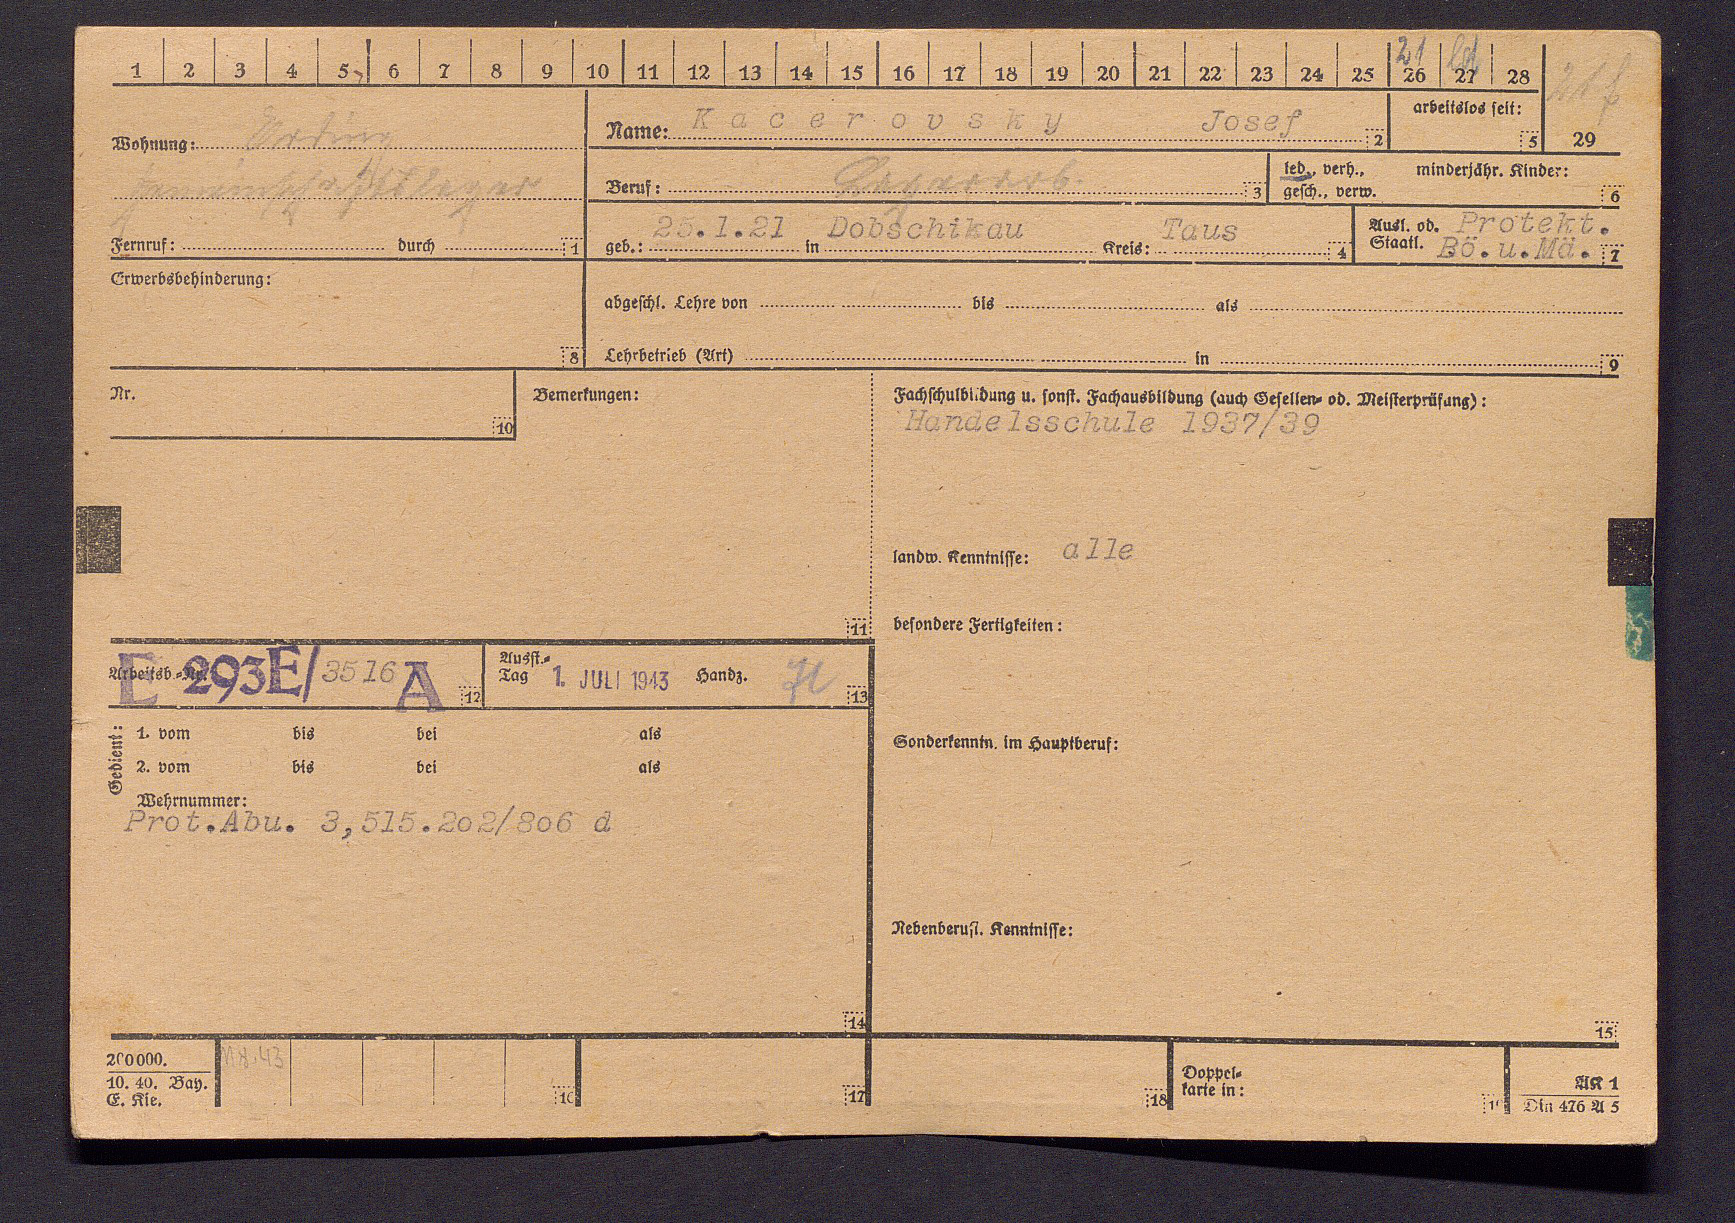 1 2 3 4 5 6 7 8 9 10 11 12 13 14 15 16 17 18 19 20 21 22 23 24 25 26 27 28
21
Wohnung: Erding
Fernruf: durch 1
Name: Kacerovsky Josef 2
arbeitslos seit: 5
29
Beruf: Lagerarb. 3
led., verh., gesch., verw.
minderjähr. Kinder: 6
geb.: 25.1.21 in Dobschikau Kreis: Taus 4
Ausl. od. Protekt.
Staatl. Bö.u.Mä. 7
Erwerbsbehinderung:
8
abgeschl. Lehre von bis als
Lehrbetrieb (Art) in 9
Nr.
10
Bemerkungen:
11
Fachschulbildung u. sonst. Fachausbildung (auch Gesellen- od. Meisterprüfung):
Handelsschule 1937/39
landw. Kenntnisse: alle
besondere Fertigkeiten:
Sonderkenntn. im Hauptberuf:
Nebenberufl. Kenntnisse:
15
Arbeitsb.-Nr. E 293E/3516 A 12
Ausst.-
Tag 1. JULI 1943 Handz. 13
Gedient:
1. vom bis bei als
2. vom bis bei als
Wehrnummer:
Prot.Abu. 3,515.202/806 d
14
200000.
10. 40. Bay.
E. Kie.
16
17
18
Doppel-
karte in:
19
AK 1
Din 476 A 5